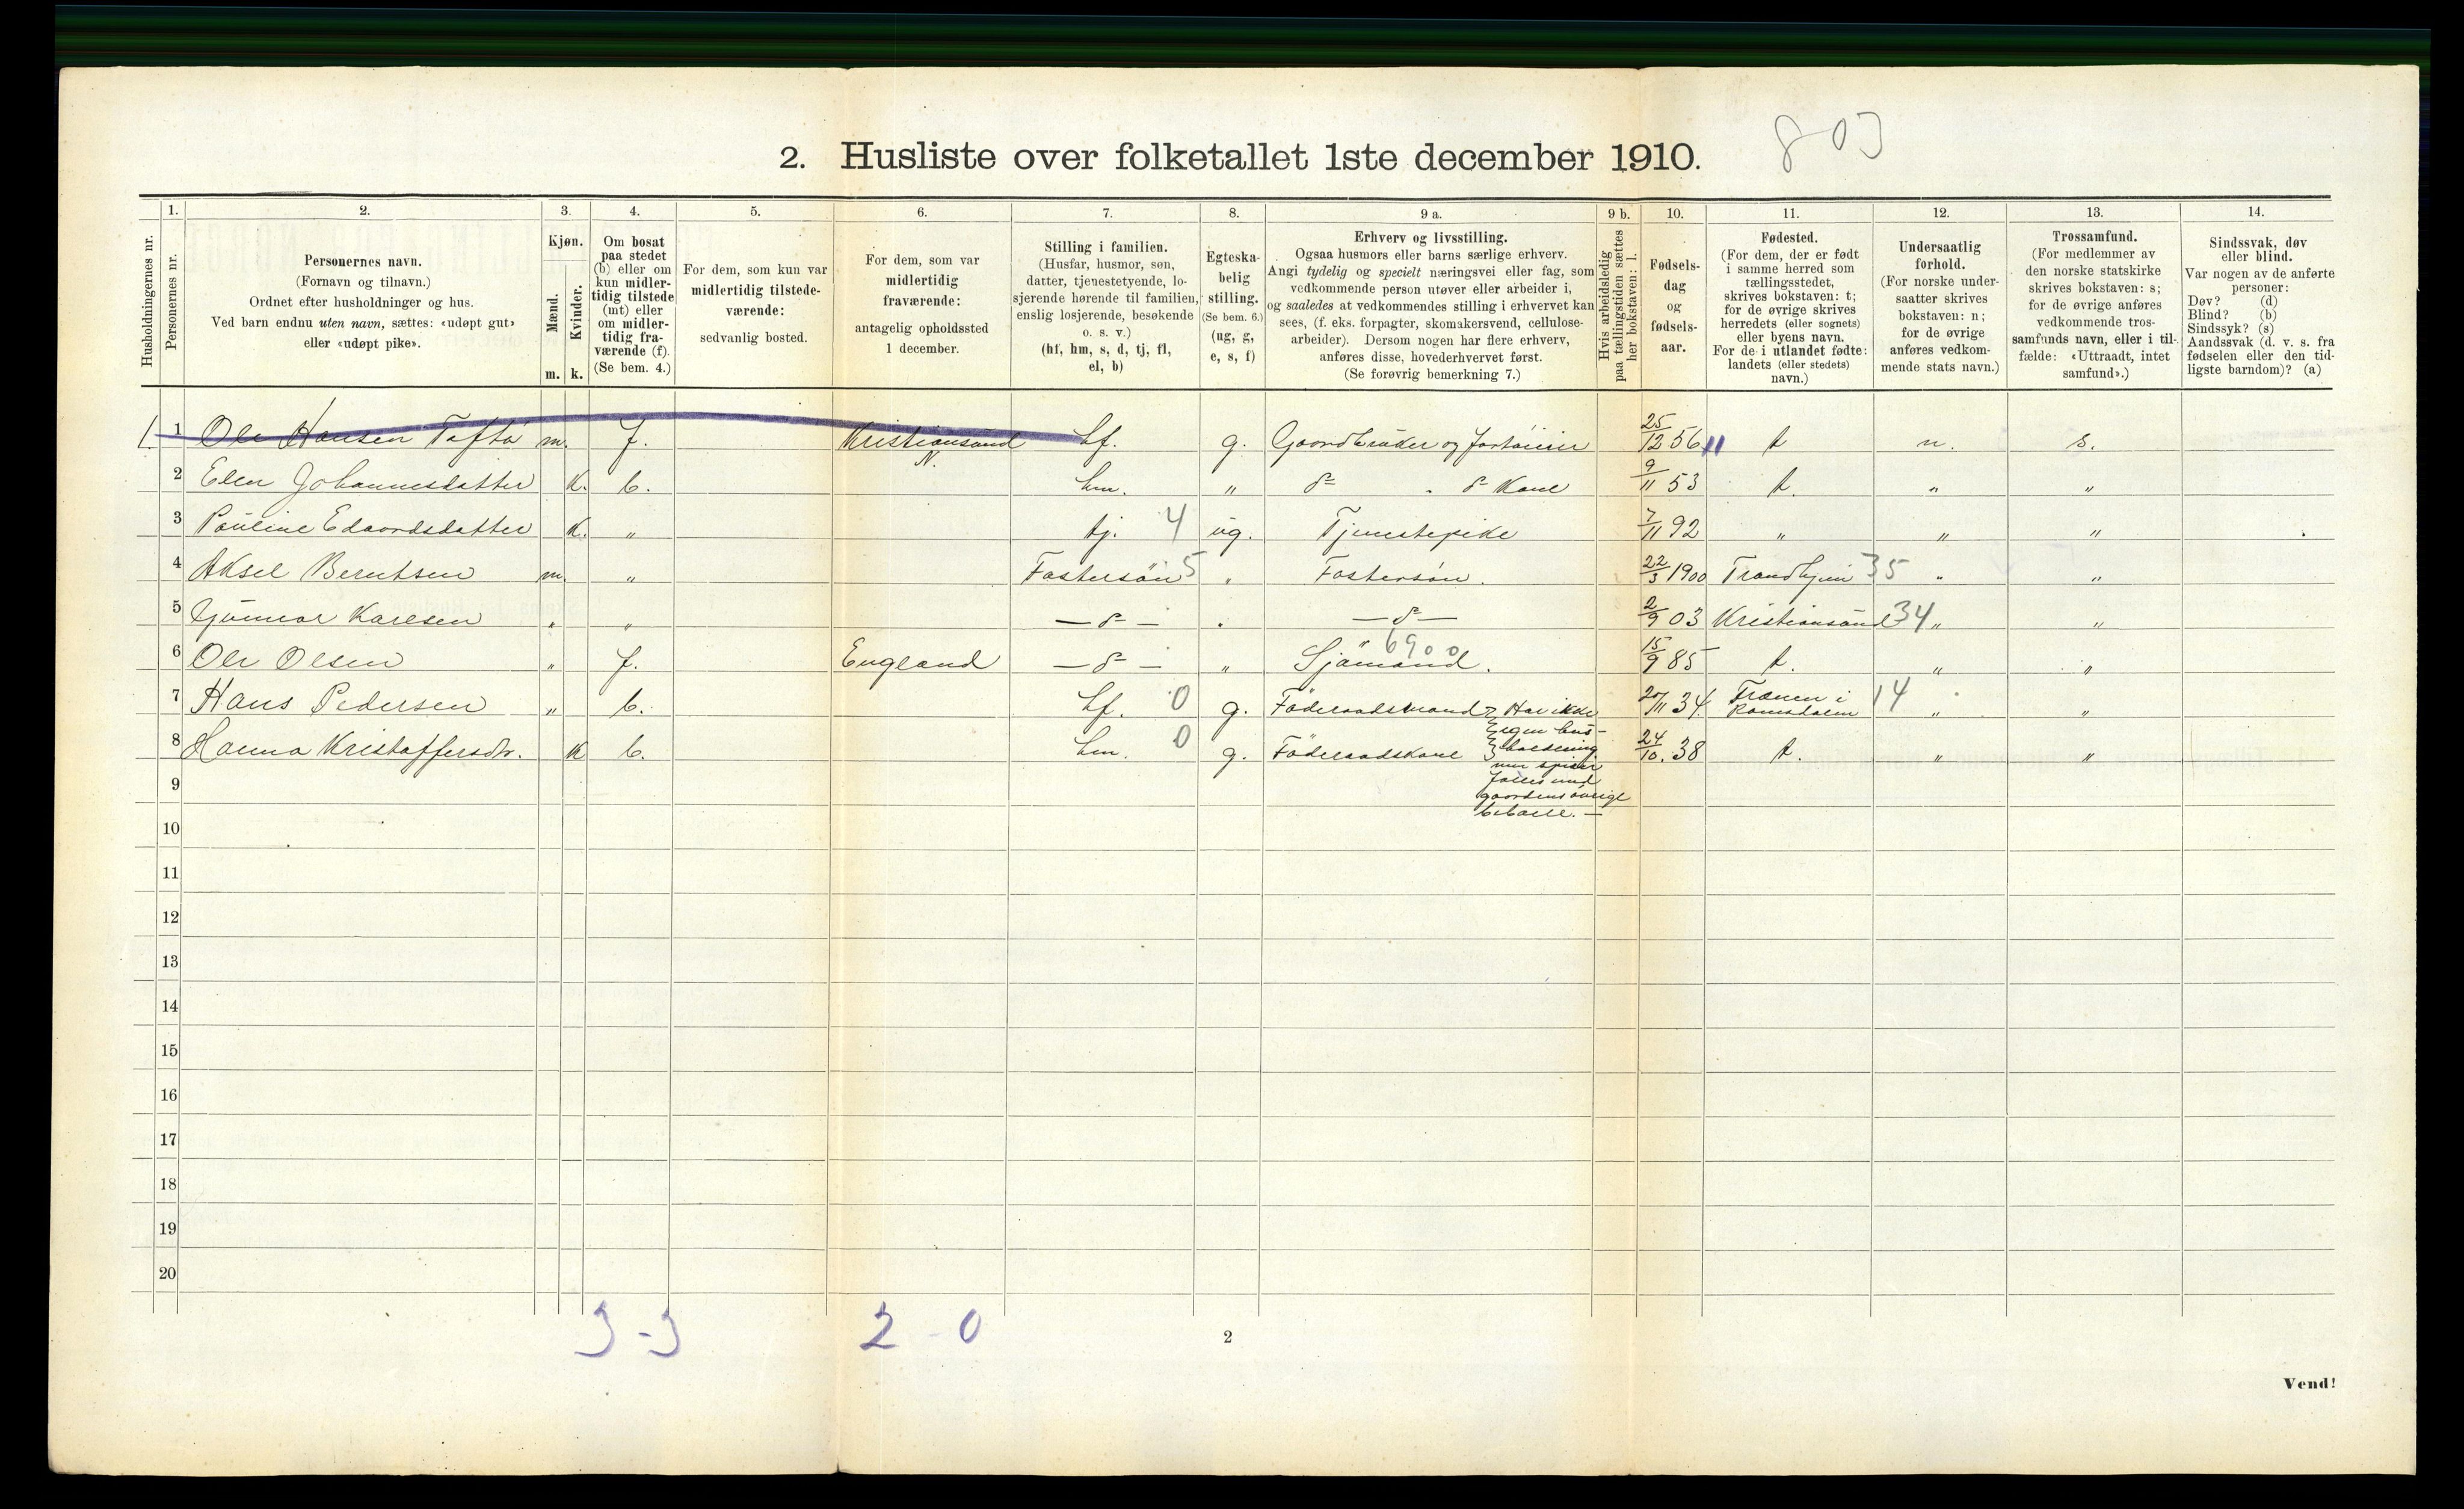 803
2. Husliste over folketallet 1ste december 1910.
Husholdningernes nr.
1.
Personernes nr.
2.
Personernes navn.
(Fornavn og tilnavn.)
Ordnet efter husholdninger og hus.
Ved barn endnu uten navn, sættes: «udøpt gut»
eller «udøpt pike».
3.
Kjøn.
Mænd.
Kvinder.
m. k.
4.
Om bosat
paa stedet
(b) eller om
kun midler-
tidig tilstede
(mt) eller
om midler-
tidig fra-
værende (f).
(Se bem. 4.)
5.
For dem, som kun var
midlertidig tilstede-
værende:
sedvanlig bosted.
6.
For dem, som var
midlertidig
fraværende:
antagelig opholdssted
1 december.
7.
Stilling i familien.
(Husfar, husmor, søn,
datter, tjenestetyende, lo-
sjerende hørende til familien,
enslig losjerende, besøkende
o. s. v.)
(hf, hm, s, d, tj, fl,
el, b)
8.
Egteska-
belig
stilling.
(Se bem. 6.)
(ug, g,
e, s, f)
9 a.
Erhverv og livsstilling.
Ogsaa husmors eller barns særlige erhverv.
Angi tydelig og specielt næringsvei eller fag, som
vedkommende person utøver eller arbeider i,
og saaledes at vedkommendes stilling i erhvervet kan
sees, (f. eks. forpagter, skomakersvend, cellulose-
arbeider). Dersom nogen har flere erhverv,
anføres disse, hovederhvervet først.
(Se forøvrig bemerkning 7.)
9 b.
Hvis arbeidsledig
paa tællingstiden sættes
her bokstaven: l.
10.
Fødsels-
dag
og
fødsels-
aar.
11.
Fødested.
(For dem, der er født
i samme herred som
tællingsstedet,
skrives bokstaven: t;
for de øvrige skrives
herredets (eller sognets)
eller byens navn.
For de i utlandet fødte:
landets (eller stedets)
navn.)
12.
Undersaatlig
forhold.
(For norske under-
saatter skrives
bokstaven: n;
for de øvrige
anføres vedkom-
mende stats navn.)
13.
Trossamfund.
(For medlemmer av
den norske statskirke
skrives bokstaven: s;
for de øvrige anføres
vedkommende tros-
samfunds navn, eller i til-
fælde: «Uttraadt, intet
samfund».)
14.
Sindssvak, døv
eller blind.
Var nogen av de anførte
personer:
Døv? (d)
Blind? (b)
Sindssyk? (s)
Aandssvak (d. v. s. fra
fødselen eller den tid-
ligste barndom)? (a)
1 1 Ole Hansen Tofta m. f. Kristiansund N. hf. g. Gaardbruker og 25/12 56 t n. s.
2 Elen Johannesdatter K. b. hm. " d= d= Kone 9/11 53 t. " "
3 Pauline Edvardsdatter K. " tj. 4 ug. Tjenestepike 7/11 92 " " "
4 Aksel Berntsen m. " Fostersön 5 " Fostersön. 22/3 1900 Trondhjem 35 " "
5 Gunnar Karlsen " " — d= — " — d= — 2/9 03 Kristiansund 34 " "
6 Ole Olsen " f. England — d= — " Sjömand. 6900 15/9 85 t. " "
7 Hans Pedersen " b. hf. 0 g. Föderaadsmand 20/11 34 Frænen i Romsdalen 14 " "
8 Hanna Kristoffersdtr. K b. hm. 0 g. Föderaadskone 24/10. 38 t. " "
Har ikke
Egen hus-
holdning
men spiser
fælles med
gaardens övrige
beboere. —
9
10
11
12
13
14
15
16
17
18
19
20
3-3 2-0
2
Vend!